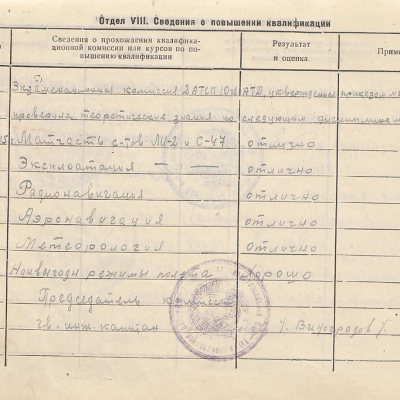 Отдел VIII. Сведения о повышении квалификации
Сведения о прохождении квалифика-
ционной комиссии или курсов по по-
вышению квалификации
Результат
и оценка
Приме
Экзаменационная комиссия 2АТСП 10й АТД, утвержденная приказом
проверила теоретические знания по следующим дисциплинам
Матчасть с-тов Ли-2 и С-47 отлично
Эксплоатация — — отлично
Радионавигация отлично
Аэронавигация отлично
Метеорология отлично
Наивыгодн. режимы полета хорошо
Председатель комиссии
гв. инж. капитан
/ Виноградов /